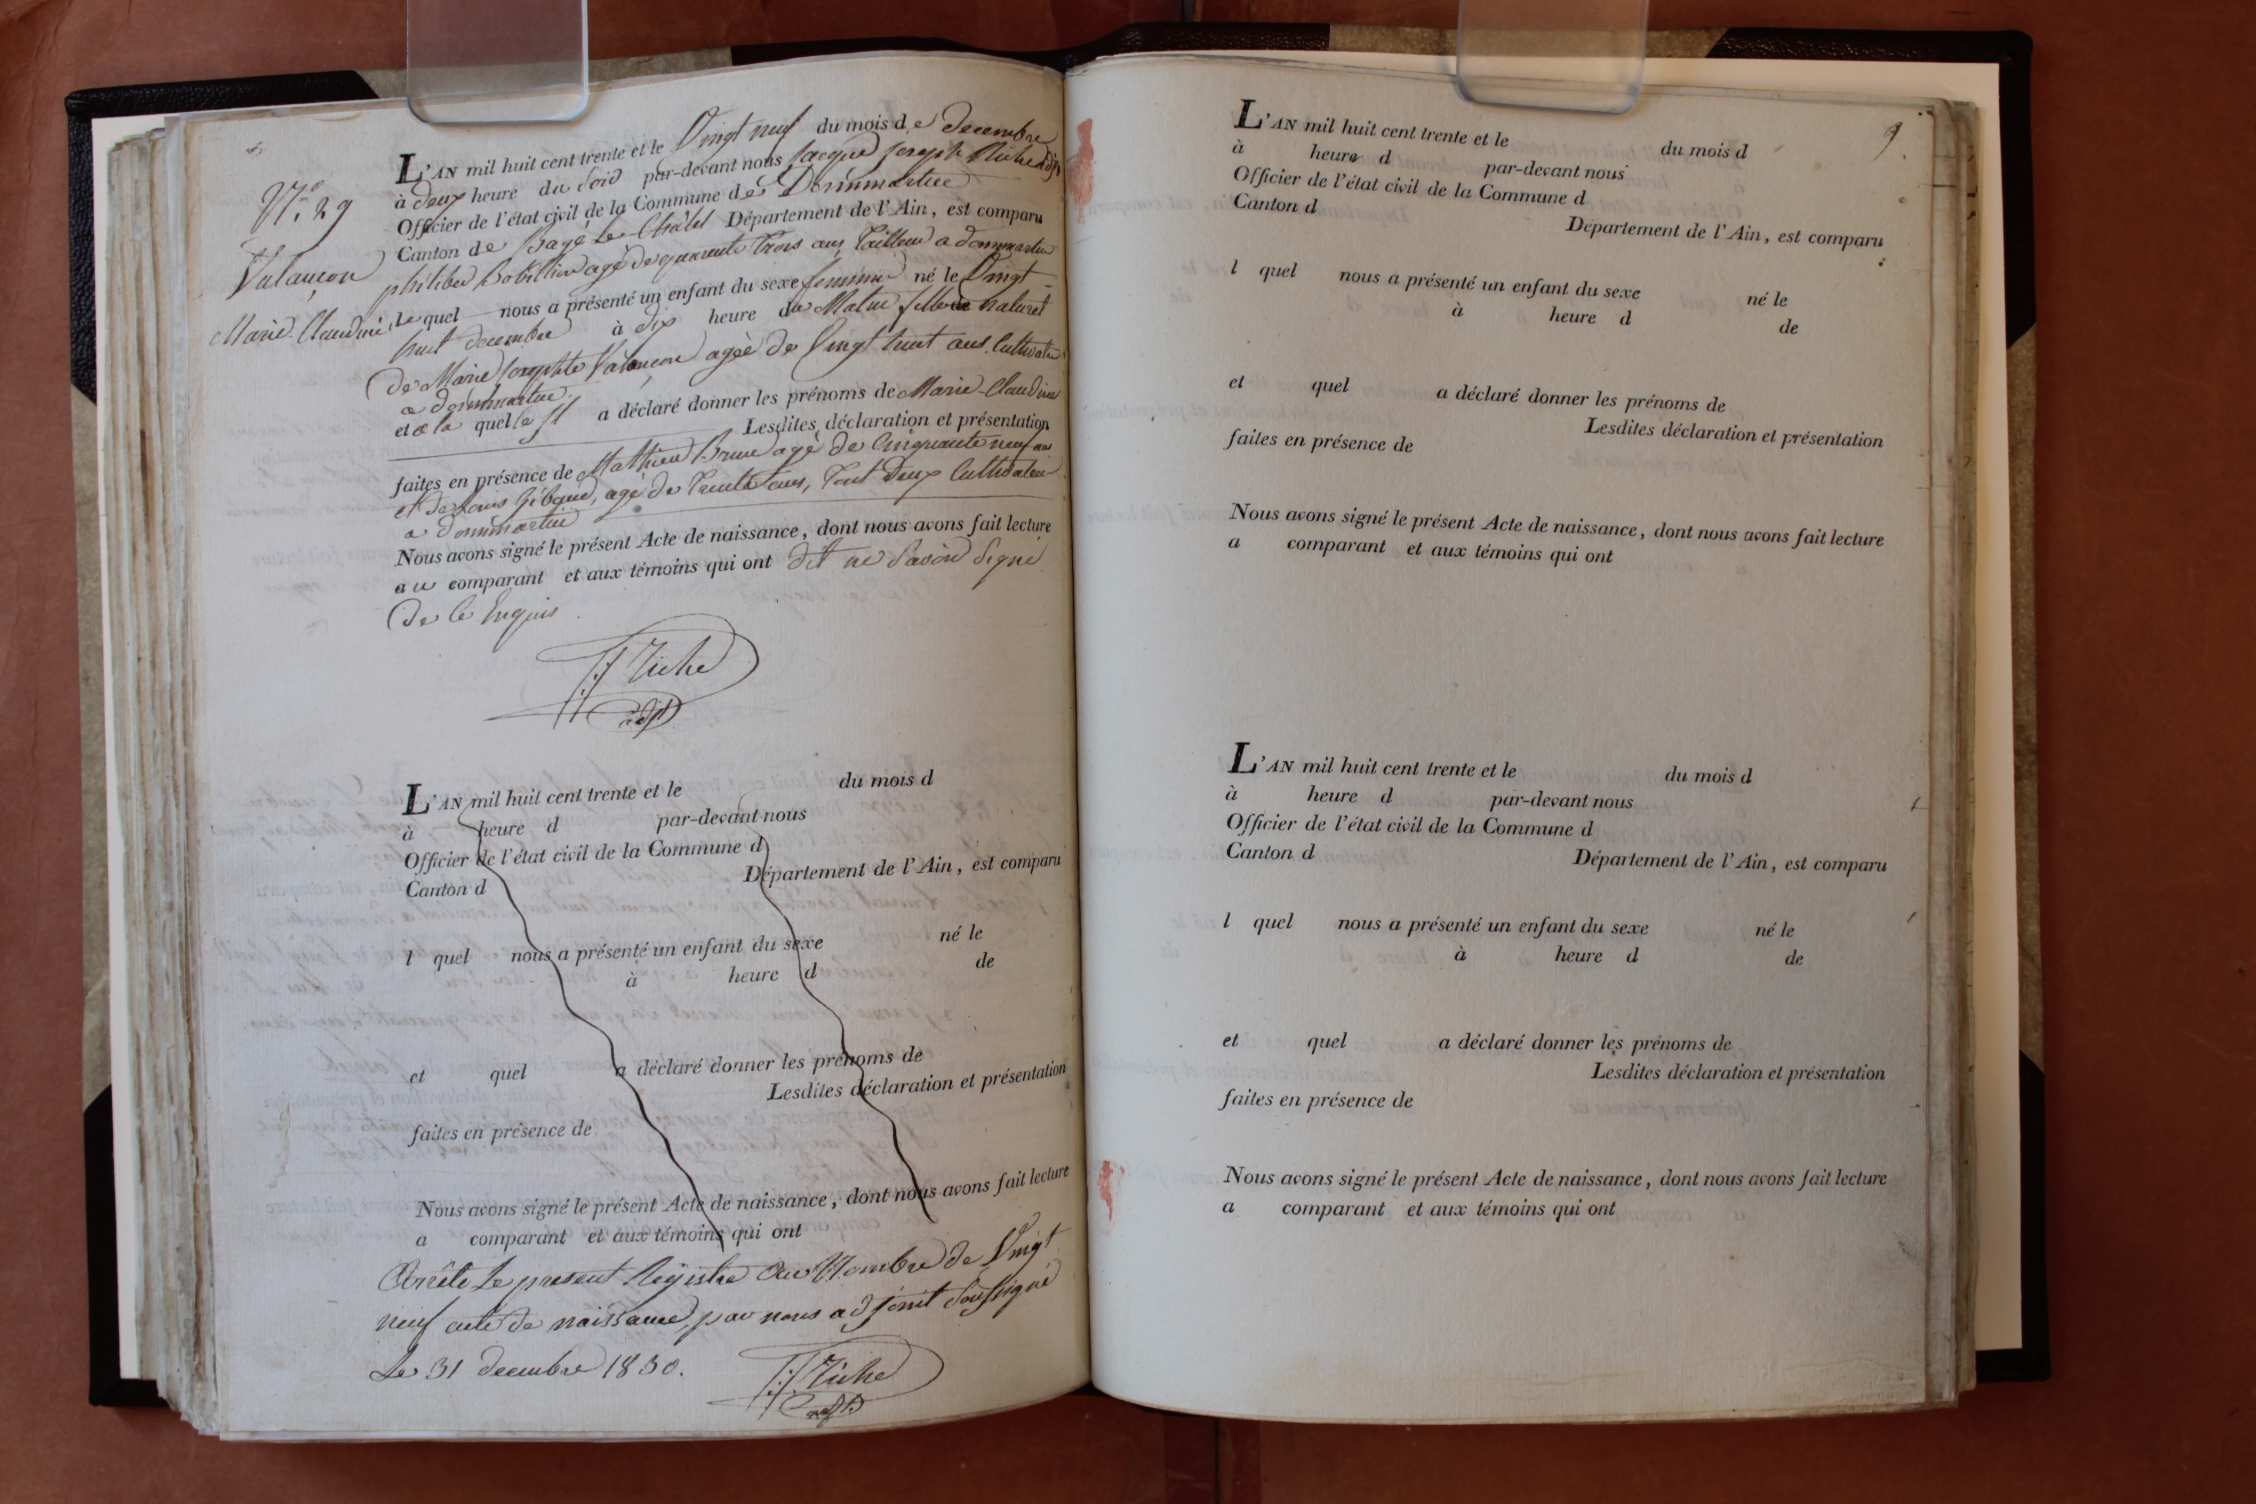 N.º 29
Valançon
Marie Claudine
L'AN mil huit cent trente et le Vingt neuf du mois de decembre
à deux heure du Soir par-devant nous Jacque Joseph Riche adjt
Officier de l'état civil de la Commune de Dommartin
Canton de Bagé Le Châtel Département de l'Ain, est comparu
philiber Bobillon agé de quarante Trois ans, Tailleur a dommartin
Le quel nous a présenté un enfant du sexe feminin né le Vingt
huit decembre à dix heure du Matin fille naturel
de Marie Josephte Valançon agée de Vingt huit ans, Cultivatr
a dommartin
et a la quel le Il a déclaré donner les prénoms de Marie-Claudine
Lesdites déclaration et présentation
faites en présence de Mathieu Brun agé de Cinquante neuf ans
et de Louis agé de Trente ans, Tout Deux Cultivateur
a dommartin
Nous avons signé le présent Acte de naissance, dont nous avons fait lecture
au comparant et aux témoins qui ont dit ne Savoir Signé
De Ce Enquis
J:J Riche
adjt
L'AN mil huit cent trente et le du mois d
à heure d par-devant nous
Officier de l'état civil de la Commune d
Canton d Département de l'Ain, est comparu
l quel nous a présenté un enfant du sexe né le
à heure d de
et quel a déclaré donner les prénoms de
Lesdites déclaration et présentation
faites en présence de
Nous avons signé le présent Acte de naissance, dont nous avons fait lecture
a comparant et aux témoins qui ont
Arrêté Le present Régistre au Nombre de Vingt
neuf acte de naissance, par nous adjoint Soussigné
Le 31 decembre 1830.
J:J Riche
adjt
9
L'AN mil huit cent trente et le du mois d
à heure d par-devant nous
Officier de l'état civil de la Commune d
Canton d Département de l'Ain, est comparu
l quel nous a présenté un enfant du sexe né le
à heure d de
et quel a déclaré donner les prénoms de
Lesdites déclaration et présentation
faites en présence de
Nous avons signé le présent Acte de naissance, dont nous avons fait lecture
a comparant et aux témoins qui ont
L'AN mil huit cent trente et le du mois d
à heure d par-devant nous
Officier de l'état civil de la Commune d
Canton d Département de l'Ain, est comparu
l quel nous a présenté un enfant du sexe né le
à heure d de
et quel a déclaré donner les prénoms de
Lesdites déclaration et présentation
faites en présence de
Nous avons signé le présent Acte de naissance, dont nous avons fait lecture
a comparant et aux témoins qui ont